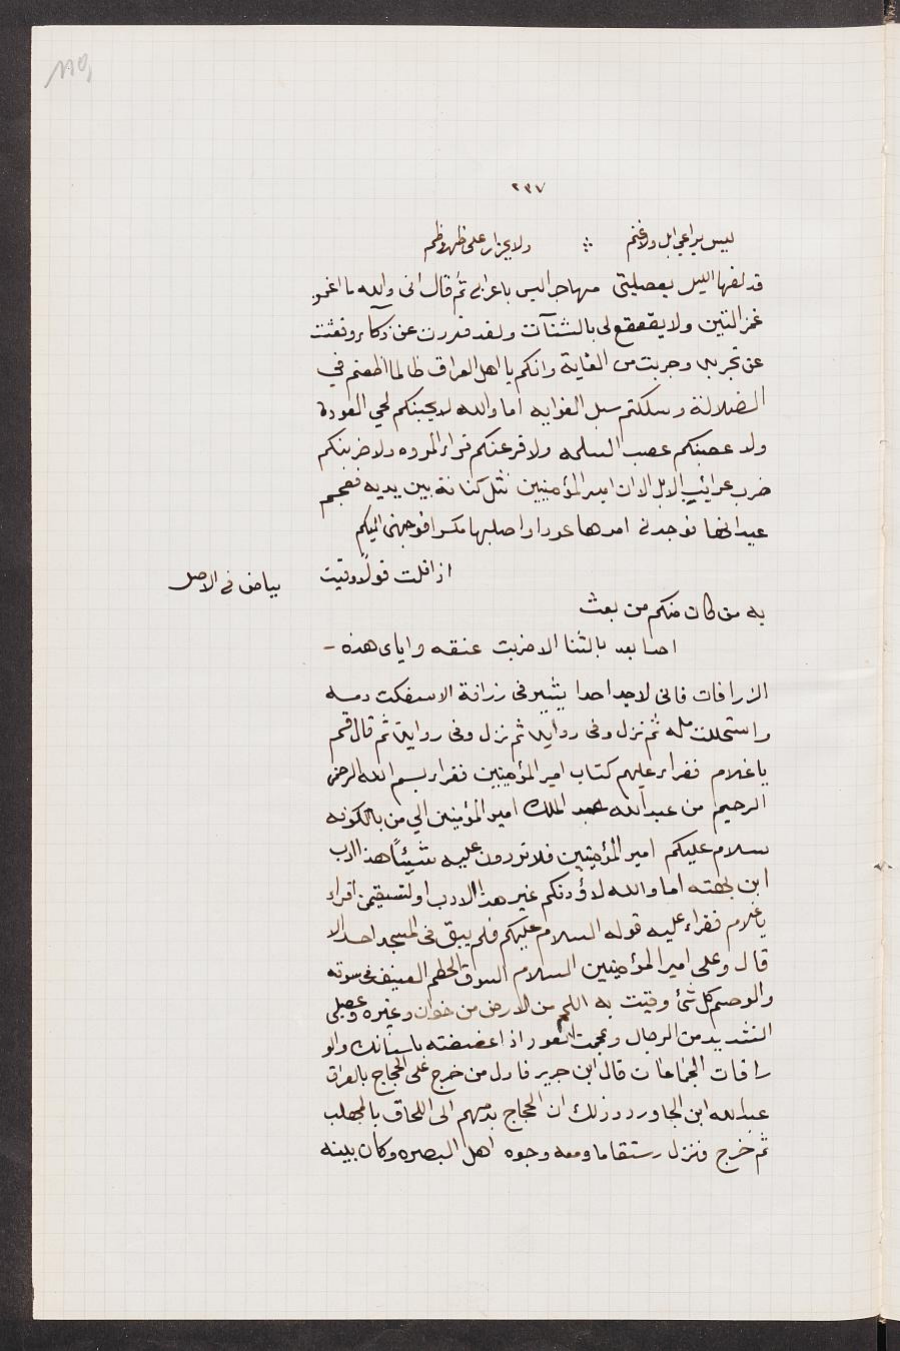 ٢٣٧
ليس براعي ابل ولا غنم ∴ ولا بجزار على ظهر وظم
قد لفها الليل بعصلبتي مهاجر ليس باعرابي ثم قال اني والله ما اغمز
غمز التين ولا يقعقع لي بالشنآت ولقد فررت عن ذكاء وفتشت
عن تجربه وجريت من الغاية وانكم يا اهل العراق طالما اظعنتم في
الضلالة وسلكتم سبل الغوايه اما والله لا لحينكم لحي العودة
ولا عصبنكم عصب السلمه ولا قرعنكم قراء المروه ولا ضربنكم
ضرب غرائب الابل الا ان امير المؤمنين نثل كنانة بين يديه فعجم
عيدانها فوجدني امرها عودا واصلبها مكسرا فوجهني اليكم
اذا قلت قولا وفيت بياض في الاصل
به من كان منكم من بعث
احدا بعد بالثنا الا ضربت عنقه واياى هذه -
الزرافات فاني لا اجد احدا يسير في زرافة الا سفكت دمه
واستحللت ماله ثم نزل وفي رواية ثم نزل وفي رواية ثم قال قم
يا غلام فقراء عليهم كتاب امير المؤمنين فقراء بسم الله الرحمن
الرحيم من عبدالله عبد الملك امير المؤمنين الي من بالكوفه
سلام عليكم امير المؤمنين فلا تردون عليه شيئًا هذا ادب
ابن نهته اما والله لاؤدبنكم غير هذا الادب او لتستقيمن اقراء
يا غلام فقراء عليه قوله السلام عليكم فلم يبق في المسجد احد الا
قال وعلى امير المؤمنين السلام السوق الحطم العنيف في سوقه
والوصم كل شئ وقيت به اللحم من الارض من خوان وغيره وعصلبي
الشديد من الرجال وعجمت العود اذا عضضته باسنانك والز
رافات الجماعات قال ابن جرير فاول من خرج على الحجاج بالعراق
عبدالله ابن الجاورد وذلك ان الحجاج يدمهم الى اللحاق بالمهلب
ثم خرج فنزل رستقاما ومعه وجوه اهل البصره وكان بينه